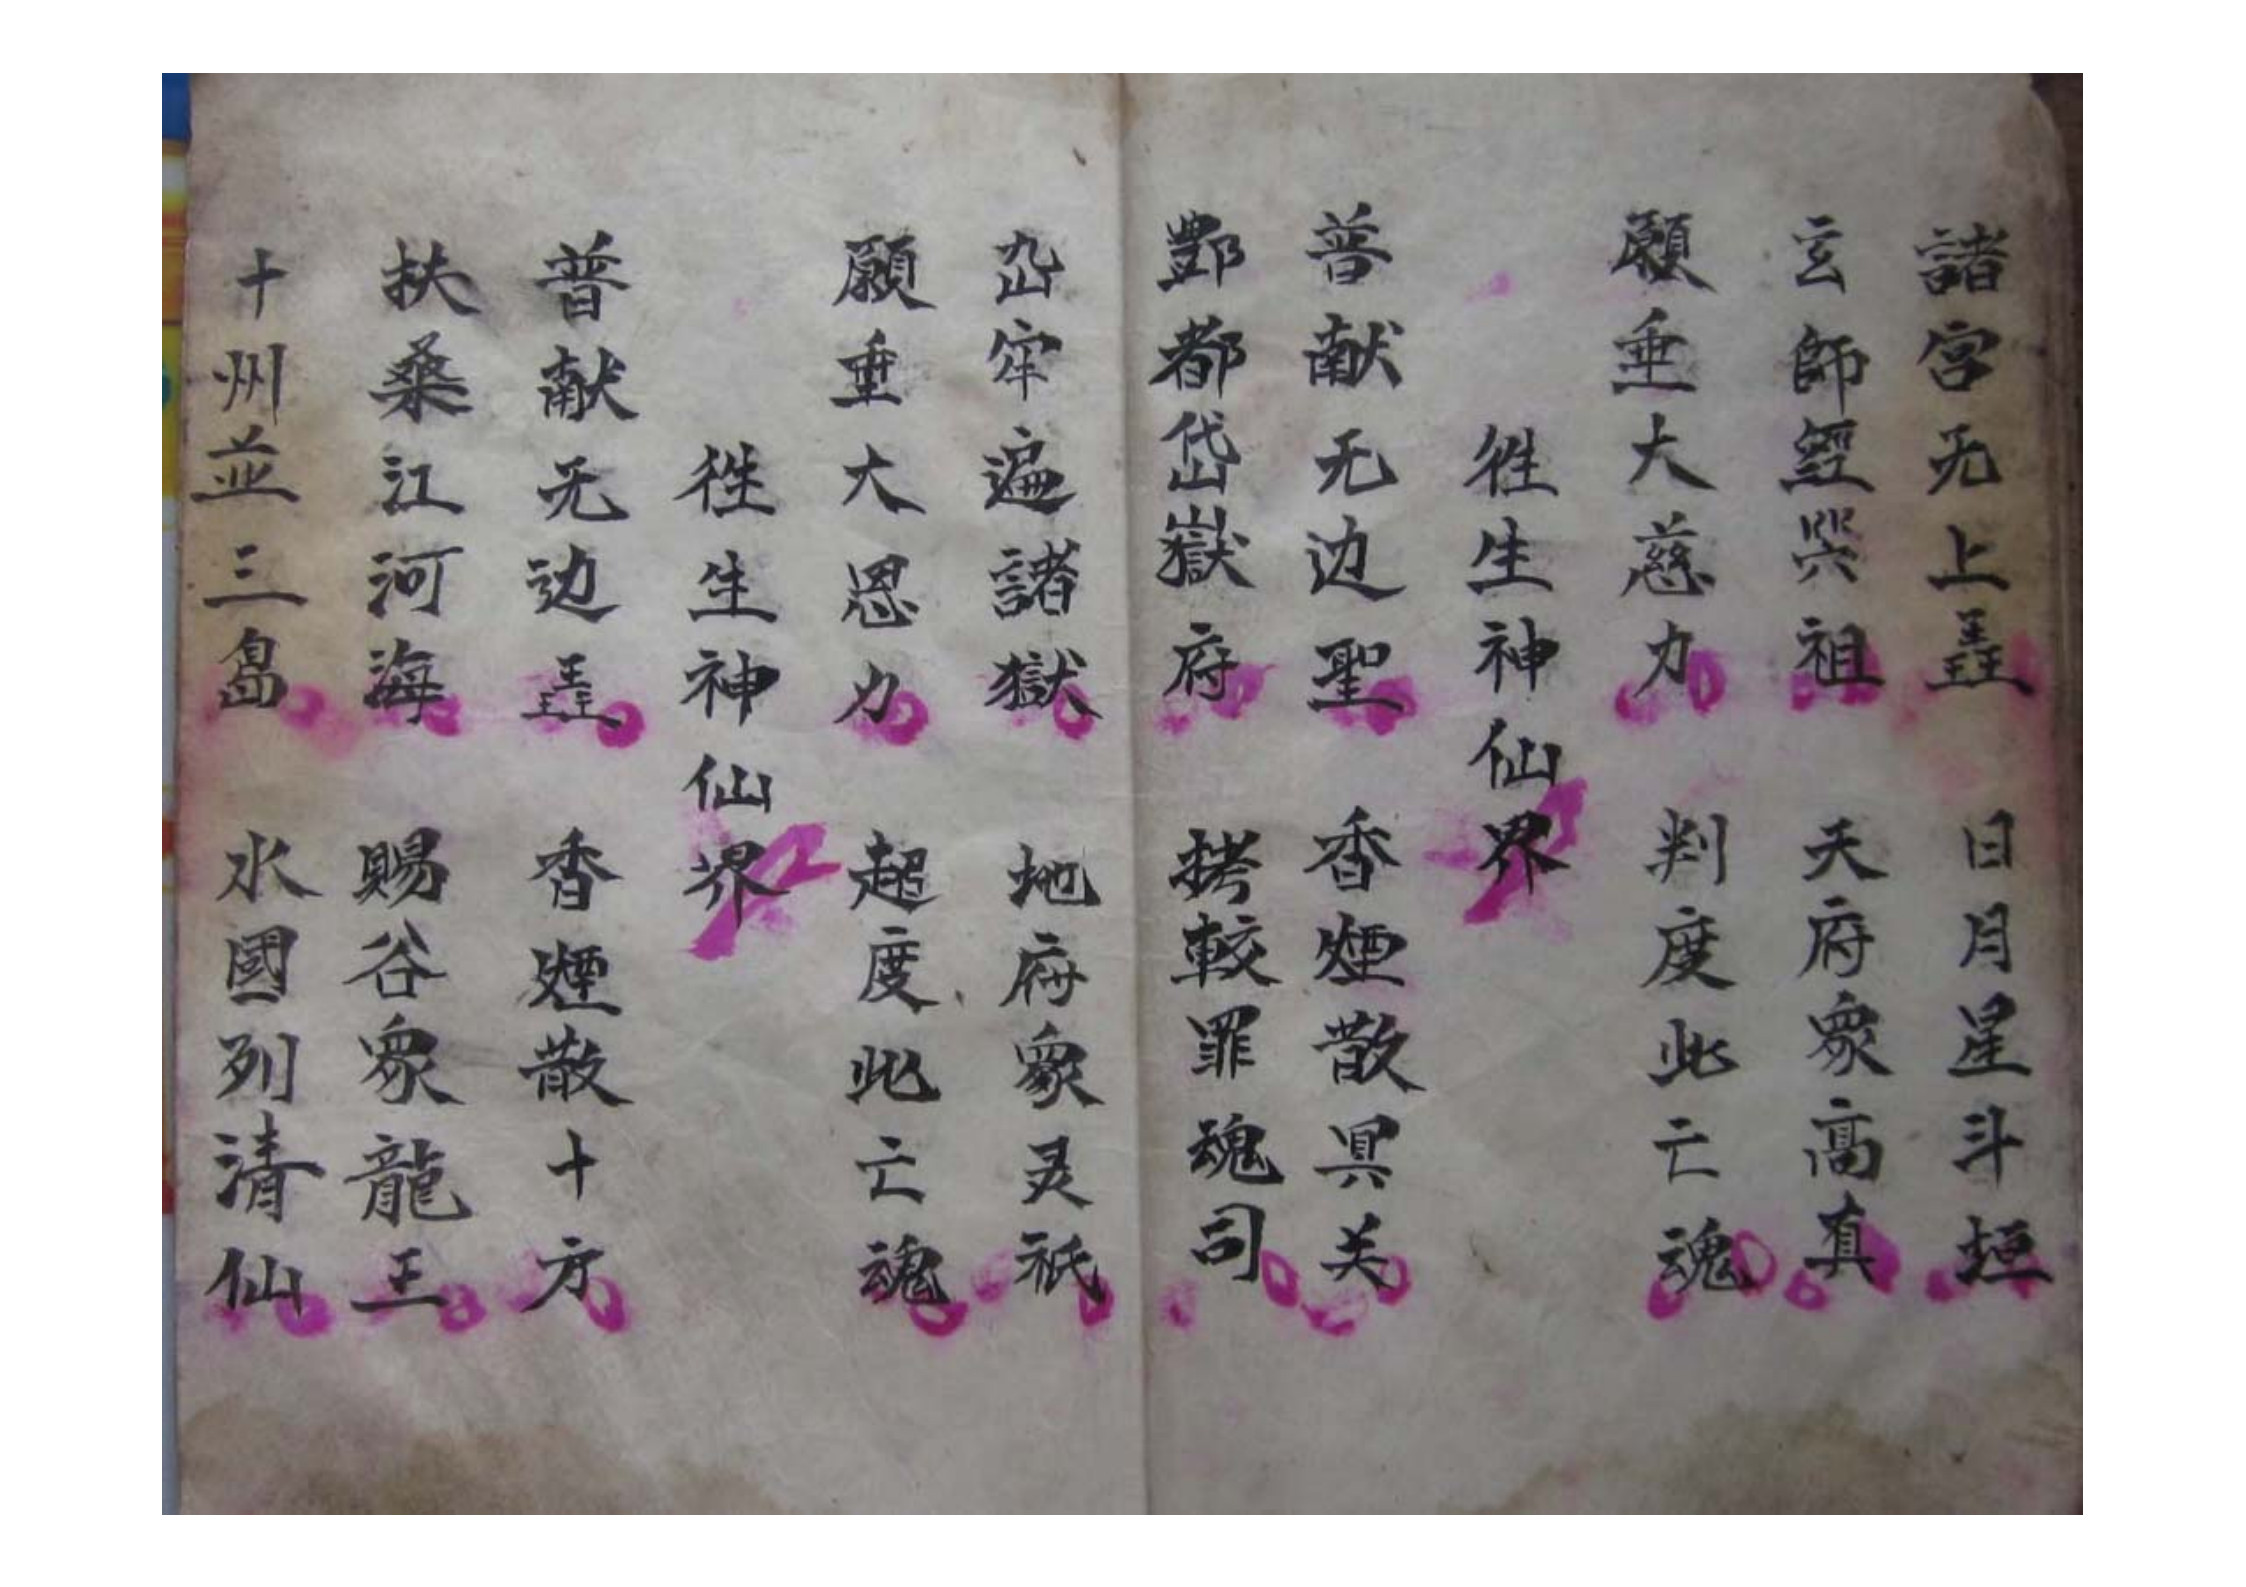 諸宮无上𦤀 日月星斗垣
玄師經咒祖 天府衆高真
願垂大慈力 判度此亡魂
徃生神仙界
普献无边聖 香煙散冥关
酆都岱嶽府 拷較罪魂司
牢遍諸獄 地府衆灵祇
願垂大恩力 超度此亡魂
徃生神仙界
普献无边 香煙散十方
扶桑江河海 賜谷衆龍王
十州並三島 水國列清仙